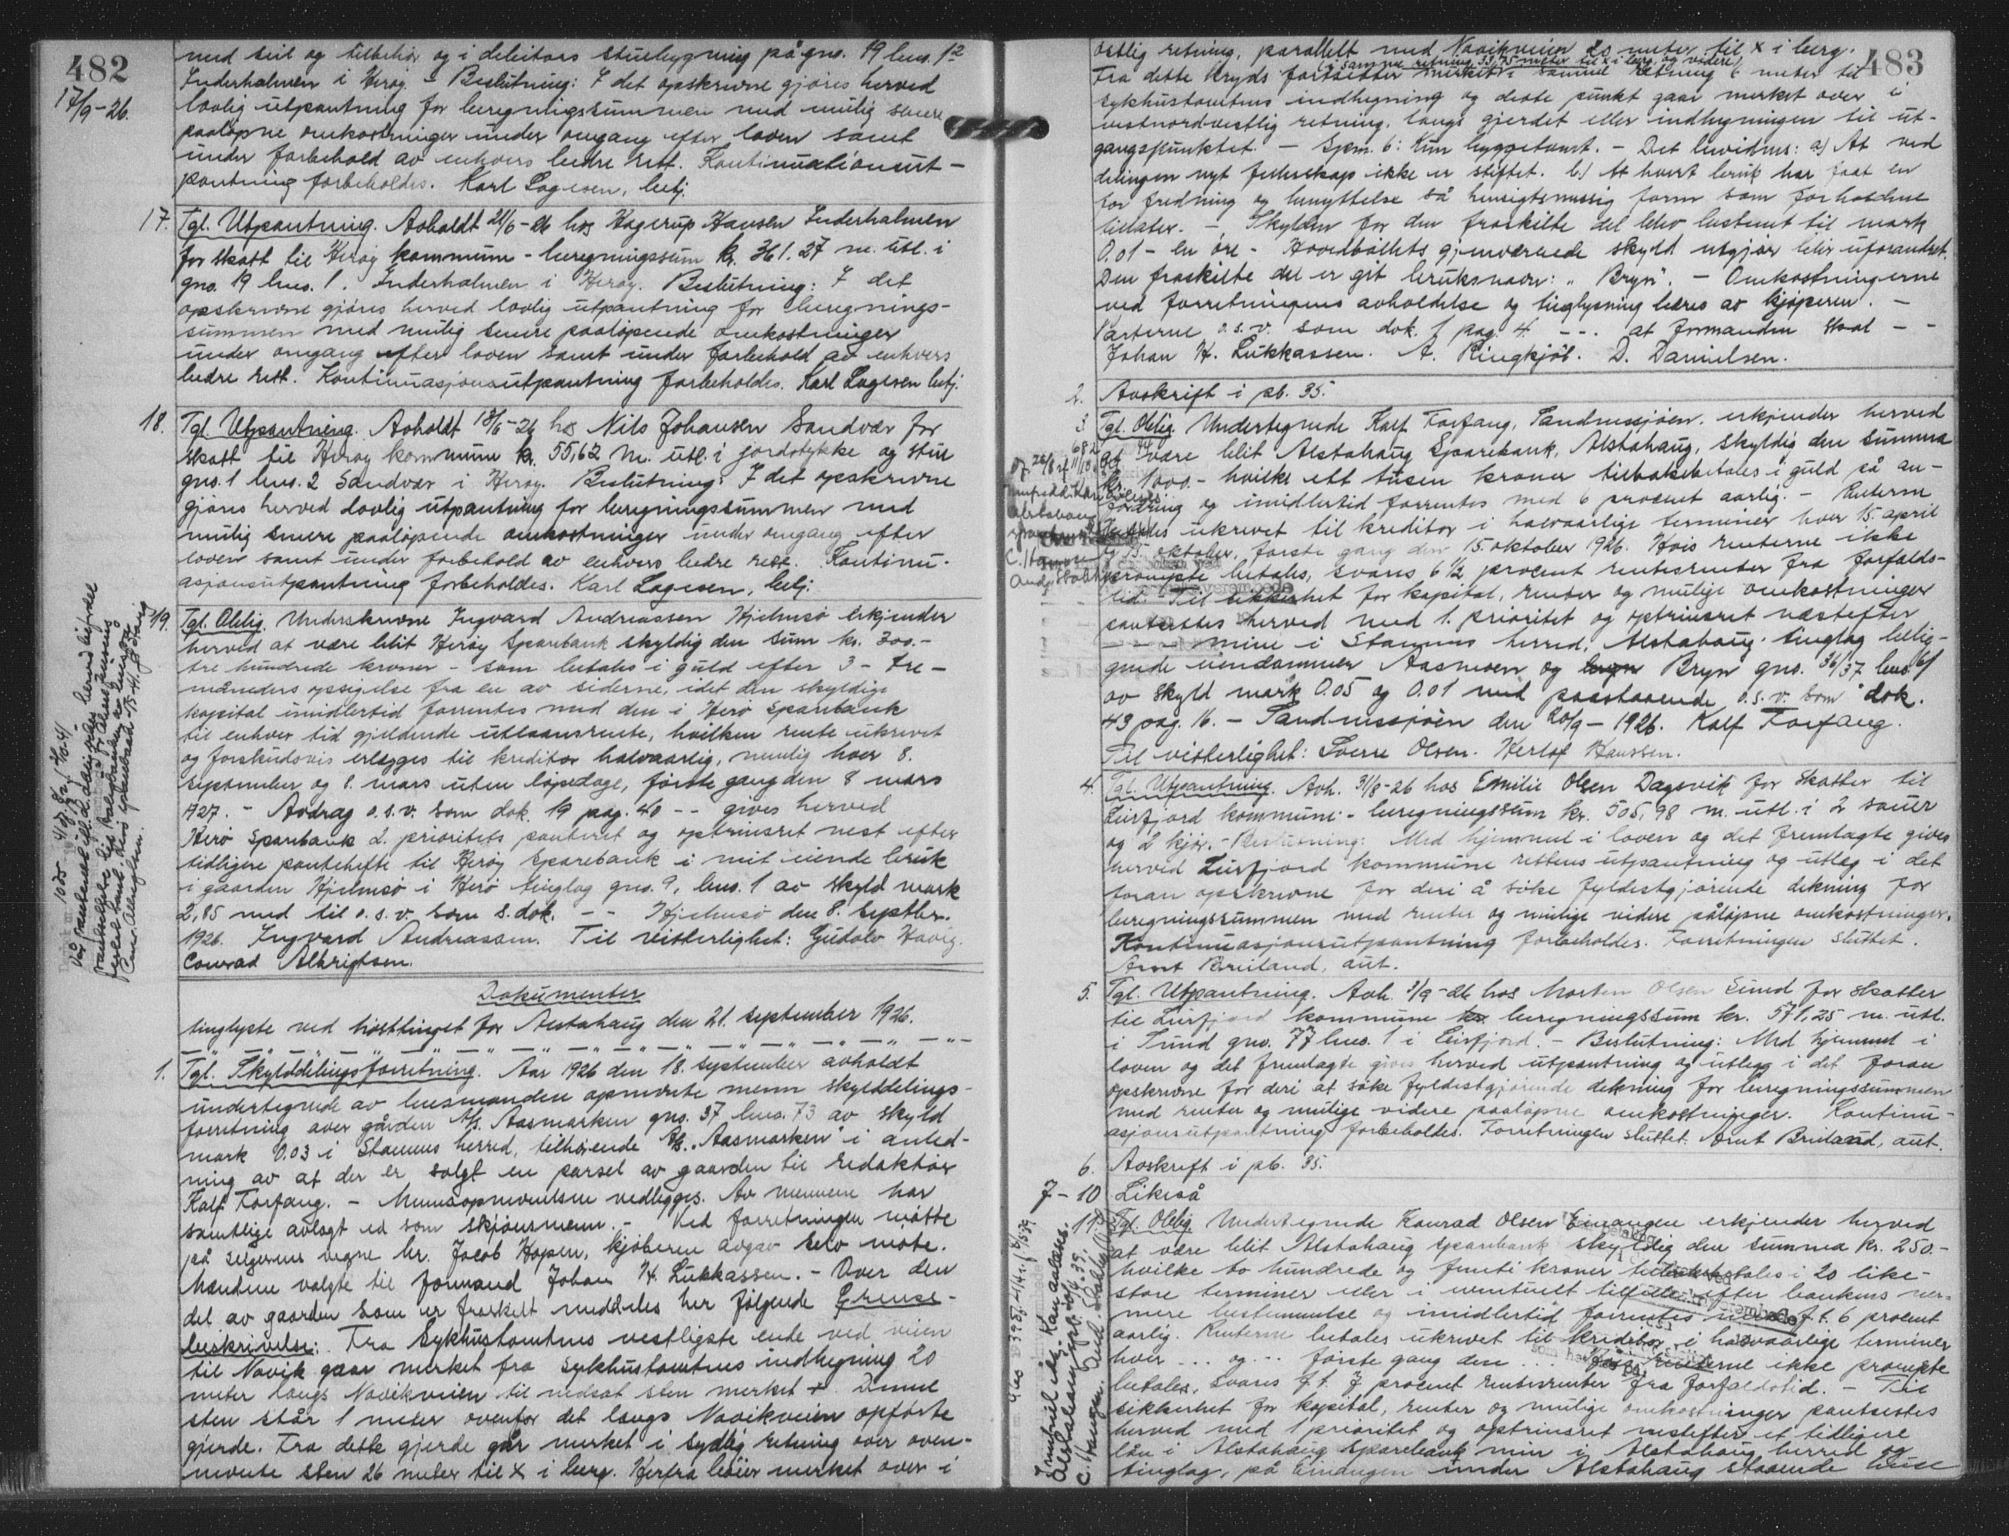 482
17/9-26.
med seil og tilbehör og i debitors stuebygning på gno. 19 bno. 12
Inderholmen i Heröy - Beslutning: I det opskrevne gjöres herved
lovlig utpantning for beregningssummen med mulig senere
paaløpne omkostninger under omgang efter loven samt
under forbehold av enhvers bedre rett. Kontinuationsut-
pantning forbeholdes. Karl Lagesen, betj.
17. Tgl. Utpantning. Avholdt 21/6-26 hos Hagerup Hansen Inderholmen
for skatt til Heröy kommune - beregningssum kr. 361.27 m. utl. i
gno. 19 bno. 1. Inderholmen i Heröy. Beslutning: I det
opskrevne gjöres herved lovlig utpantning for beregnings-
summen med mulig senere paalöpende omkostninger
under omgang efter loven samt under forbehold av enhvers
bedre rett. Kontinuasjonsutpantning forbeholdes. Karl Lagesen betj.
18. Tgl. Utpantning. Avholdt 13/6-26 hos Nils Johansen Sandvær for
skatt til Heröy kommune kr. 55,62 m. utl. i jordstykke og stue
gno. 1 bno. 2 Sandvær i Heröy. Beslutning: I det opskrevne
gjöres herved lovlig utpantning for beregningssummen med
mulig senere paalöpende omkostninger under omgang efter
loven samt under forbehold av enhvers bedre rett. Kontinu-
asjonsutpantning forbeholdes. Karl Lagesen, betj.
19. Tgl. Oblig. Underskrevne Ingvard Andreassen Hjelmsö erkjender
herved at være blit Heröy Sparebank skyldig den sum kr. 300.-
tre hundrede kroner - som betales i guld efter 3 - tre -
måneders opsigelse fra en av siderne, idet den skyldige
kapital imidlertid forrentes med den i Herö Sparebank
til enhver tid gjeldende utlaansrente, hvilken rente ukrevet
og forskudsvis erlægges til kreditor halvaarlig, nemlig hver 8.
september og 8. mars uten löpedage, förste gang den 8 mars
1927. - Avdrag o.s.v. som dok. 19 pag. 40 -- gives herved
Herö Sparebank 2. prioritets panteret og optrinsret nest efter
tidligere pantehefte til Heröy Sparebank i mit eiende bruk
i gaarden Hjelmsö i Herö tinglag gno. 9, bno. 1 av skyld mark
2,85 med til o.s.v. som s. dok. -- Hjelmsö den 8. septbr.
1926. Ingvard Andreassen. Til vitterlighet: Gudolv Havig.
Conrad Albrigtsen.
Dokumenter
tinglyste ved hösttinget for Alstahaug den 21. september 1926.
1. Tgl. Skylddelingsforretning. Aar 1926 den 18. september avholdt
undertegnede av lensmanden opnævnte menn skylddelings-
forretning over gården A/s. Aasmarken gno. 37 bno. 73 av skyld
mark 0.03 i Stamnes herred, tilhörende A/s. "Aasmarken" i anled-
ning av at der er solgt en parsel av gaarden til redaktör
Kalf Torfang. - Mennsopnevnelsen vedlegges. Av mennene har
samtlige avlagt ed som skjönsmenn. - Ved forretningen mötte
på selgerens vegne hr. Jacob Hopen, kjöberen avgav selv möte.
Mændene valgte til formand Johan H. Lukkassen. - Over den
del av gaarden som er fraskelt meddeles her fölgende Grense-
beskrivelse: Fra Sykhustomtens vestligste ende ved veien
til Novik gaar merket fra sykhustomtens indhegning 20
meter langs Novikveien til nedsat sten merket +. Denne
sten står 1 meter ovenfor det langs Novikveien opförte
gjerde. Fra dette gjerde går merket i sydlig retning over oven-
nevnte sten 26 meter til x i berg. Herfra böier merket over i
483
östlig retning, parallelt med Novikveien 20 meter til x i berg.
i samme retning 33,75 meter til x i berg og videre
Fra dette kryds fortsetter merket i samme retning 6 meter til
sykhustomtens indhegning og dette punkt gaar merket over i
vestnordvestlig retning, langs gjerdet eller indhegningen til ut-
gangspunktet. - Spm. 6: Kun byggetomt. - Det bevidnes: a) At ved
delingen nyt fellesskap ikke er stiftet. b) At hvert bruk har faat en
for fredning og benyttelse så hensigtsmessig form som forholdene
tillater. - Skylden for den fraskilte del blev bestemt til mark
0.01 - en öre - Hovedbölets gjenværende skyld utgjör blir uforandret.
Den fraskilte del er git bruksnavn: "Bryn". - Omkostningerne
ved forretningens avholdelse og tinglysning bæres av kjöperen. -
Parterne o.s.v. som dok. 1 pag. 4 --- at formanden skal --
Johan H. Lukkassen. A. Ringkjöb. D. Danielsen.
2. Avskrift i pb. 35.
3. Tgl. Oblig. Undertegnede Kalf Torfang, Sandnessjöen, erkjender herved
at være blit Alstahaug Sparebank, Alstahaug, skyldig den summa
kr. 1000.- hvilke ett tusen kroner tilbakebetales i guld så an-
fordring og imidlertid forrentes med 6 procent aarlig. - Renterne
betales ukrevet til kreditor i halvaarlige terminer hver 15. april
og 15. oktober, förste gang den 15. oktober 1926. Hvis renterne ikke
prompte betales, svares 6 1/2 procent rentesrenter fra forfalds-
tid. Til sikkerhet for kapital, renter og mulige omkostninger
pantsettes herved med 1. prioritet og optrinsret næstefter
- - - mine i Stamnes herred, Alstahaug tinglag belig-
gende eiendommer Aasmoen og Bryn gno. 36/37 bno. 6/
av skyld mark 0.05 og 0.01 med paastaaende o.s.v. som dok.
43 pag. 16. - Sandnessjöen den 20/9 - 1926. Kalf Torfang.
Til vitterlighet: Sverre Olsen. Hertof Hanssen.
4. Tgl. Utpantning. Avh. 31/8-26 hos Emilie Olsen Dagsvik for skatter til
Leirfjord kommune - beregningssum kr. 505,98 m. utl. i 2 sauer
og 2 kjör. - Beslutning: Med hjemmel i loven og det fremlagte gives
herved Leirfjord kommune rettens utpantning og utleg i det
foran opskrevne for deri å söke fyldestgjörende dekning for
beregningssummen med renter og mulige videre pålöpne omkostninger.
Kontinuasjonsutpantning forbeholdes. Forretningen sluttet.
Arnt Breiland, aut.
5. Tgl. Utpantning. Avh. 3/9-26 hos Morten Olsen Eund for skatter
til Leirfjord kommune beregningssum kr. 571,25 m. utl.
i gno. 77 bno. 1 i Leirfjord. - Beslutning: Med hjemmel i
loven og det fremlagte gives herved utpantning og utlegg i det foran
opskrevne for deri at söke fyldestgjörende dekning for beregningssummen
med renter og mulige videre paalöpne omkostninger. Kontinu-
asjonsutpantning forbeholdes. Forretningen sluttet. Arnt Breiland, aut.
6. Avskrift i pb. 35.
7 - 10 Likeså
11. Tgl. Oblig Undertegnede Konrad Olsen Einangen erkjender herved
at være blit Alstahaug Sparebank skyldig den summa kr. 250.-
hvilke to hundrede og femti kroner tilbakebetales i 20 like-
store terminer eller i eventuelt tilfelle efter bankens nær-
mere bestemmelse og imidlertid forrentes med f.t. 6 procent
aarlig. Renterne betales ukrevet til kreditor i halvaarlige terminer
hver ... og ... förste gang den ... Hvis renterne ikke prompte
betales, svares f.t. 7 procent rentesrenter fra forfaldstid. - Til
sikkerhet for kapital, renter og mulige omkostninger pantsettes
herved med 1 prioritet og optrinsret nestefter et tidligere
lån i Alstahaug Sparebank min i Alstahaug herred og
tinglag, på Einangen under Alstahaug staaende huse